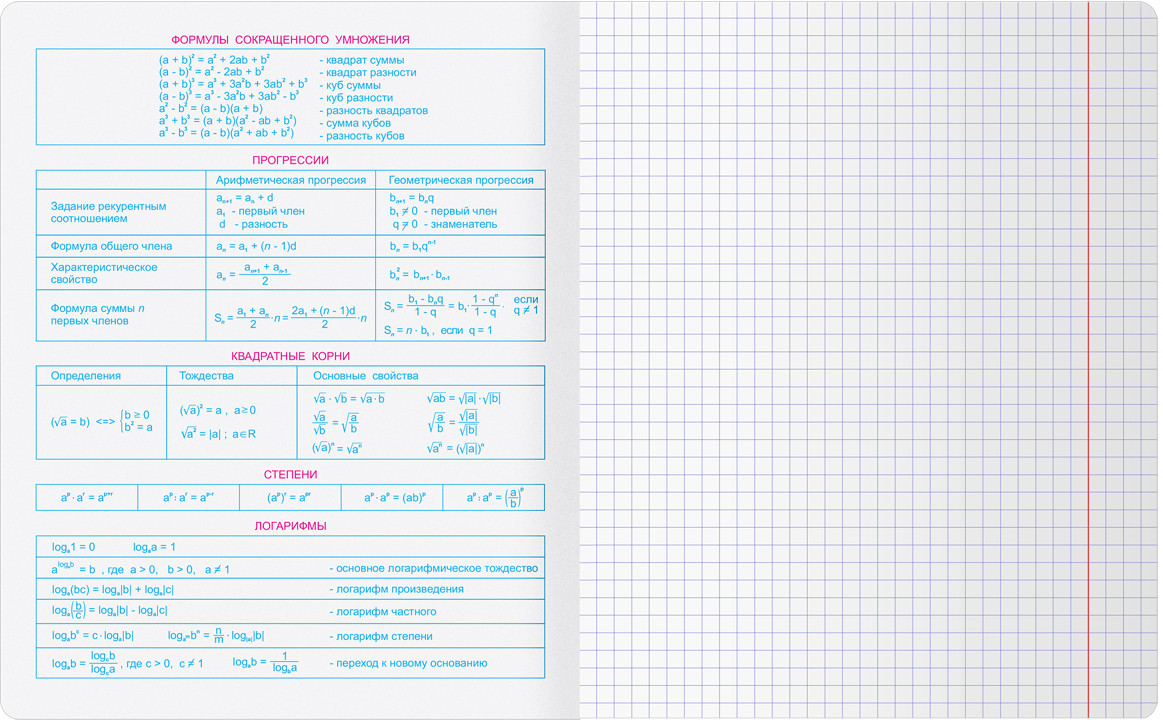 ФОРМУЛЫ СОКРАЩЕННОГО УМНОЖЕНИЯ
(a + b)² = a² + 2ab + b² - квадрат суммы
(a - b)² = a² - 2ab + b² - квадрат разности
(a + b)³ = a³ + 3a²b + 3ab² + b³ - куб суммы
(a - b)³ = a³ - 3a²b + 3ab² - b³ - куб разности
a² - b² = (a - b)(a + b) - разность квадратов
a³ + b³ = (a + b)(a² - ab + b²) - сумма кубов
a³ - b³ = (a - b)(a² + ab + b²) - разность кубов
ПРОГРЕССИИ
Арифметическая прогрессия Геометрическая прогрессия
Задание рекурентным соотношением
aₙ₊₁ = aₙ + d
a₁ - первый член
d - разность
bₙ₊₁ = bₙq
b₁ ≠ 0 - первый член
q ≠ 0 - знаменатель
Формула общего члена aₙ = a₁ + (n - 1)d bₙ = b₁qⁿ⁻¹
Характеристическое свойство aₙ = (aₙ₊₁ + aₙ₋₁)/2 bₙ² = bₙ₊₁ · bₙ₋₁
Формула суммы n первых членов
Sₙ = (a₁ + aₙ)/2 · n = (2a₁ + (n - 1)d)/2 · n
Sₙ = (b₁ - bₙq)/(1 - q) = b₁ · (1 - qⁿ)/(1 - q) · если q ≠ 1
Sₙ = n · b₁ , если q = 1
КВАДРАТНЫЕ КОРНИ
Определения Тождества Основные свойства
(√a = b) <=> {b ≥ 0
b² = a
(√a)² = a , a ≥ 0
√a² = |a| ; a∈R
√a · √b = √a·b √ab = √|a| · √|b|
√a/√b = √(a/b) √(a/b) = √|a|/√|b|
(√a)ⁿ = √aⁿ √aⁿ = (√|a|)ⁿ
СТЕПЕНИ
aᵖ · aʳ = aᵖ⁺ʳ aᵖ : aʳ = aᵖ⁻ʳ (aᵖ)ʳ = aᵖʳ aᵖ · aᵖ = (ab)ᵖ aᵖ : aᵖ = (a/b)ᵖ
ЛОГАРИФМЫ
logₐ1 = 0 logₐa = 1
a^(logₐb) = b , где a > 0, b > 0, a ≠ 1 - основное логарифмическое тождество
logₐ(bc) = logₐ|b| + logₐ|c| - логарифм произведения
logₐ(b/c) = logₐ|b| - logₐ|c| - логарифм частного
logₐbᶜ = c · logₐ|b| log_(aᵐ)bⁿ = n/m · log_|a||b| - логарифм степени
logₐb = log_c b/log_c a , где c > 0, c ≠ 1 logₐb = 1/log_b a - переход к новому основанию